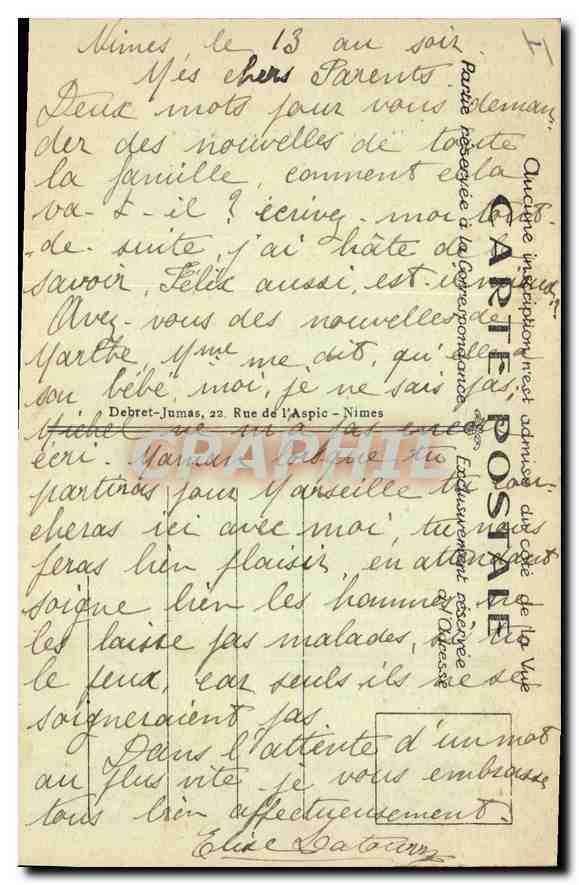 Nimes le 13 au soir.
Mes chers Parents.
Deux mots pour vous deman-
der des nouvelles de toute
la famille, comment cela
va-t-il? écrivez-moi tout-
-de-suite, j'ai hâte de
savoir, Félix aussi, est-il mieux?
Avez-vous des nouvelles de
Marthe, Mme me dit, qu'elle a
son bébé, moi, je ne sais pas,
Debret-Jumas, 22. Rue de l'Aspic - Nimes
Michel ne m'a pas encor
écri. Maman lorsque tu
partiras pour Marseille tu cou-
cheras ici avec moi, tu nous
feras bien plaisir, en attendant
soigne bien les hommes, ne
les laisse pas malades, si tu
le peux, car seuls ils ne se
soigneraient pas
Dans l'attente d'un mot
au plus vite je vous embrasse
tous bien affectueusement.
Elise Latour
CARTE POSTALE
Aucune inscription n'est admise du côté de la Vue
Partie réservée à la Correspondance
Exclusivement réservée
à l'Adresse
CPAPHIL